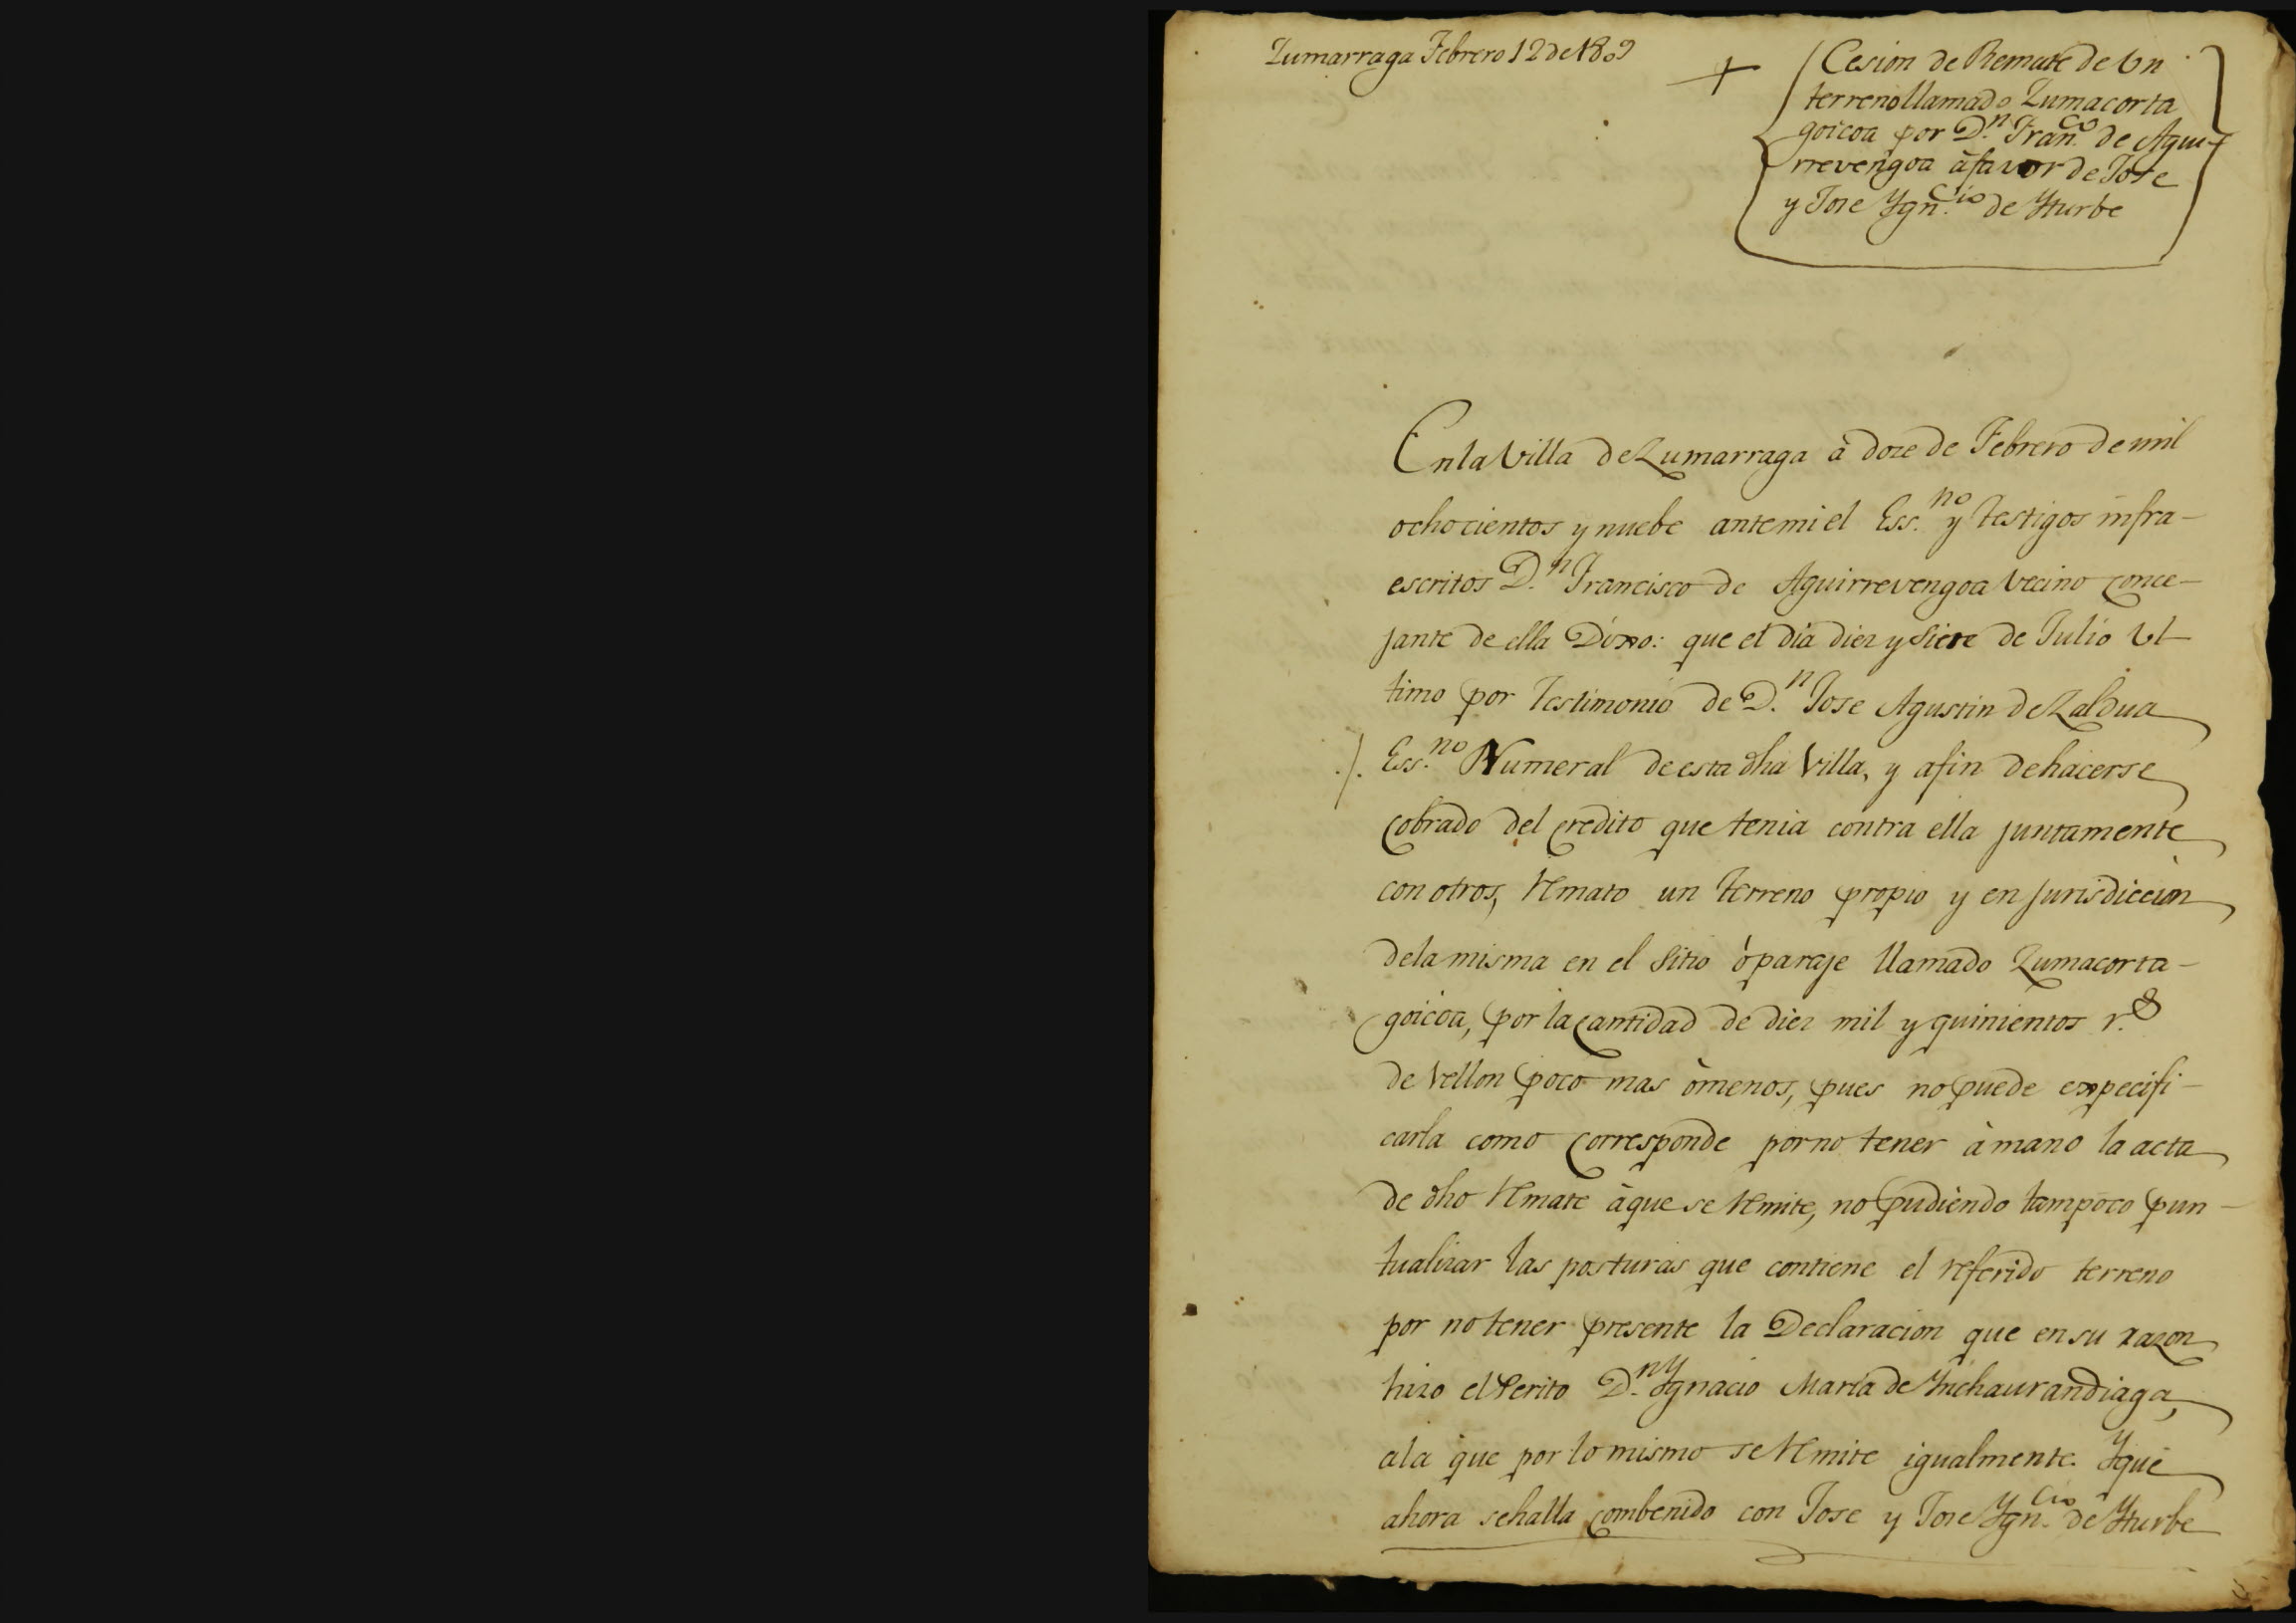 Zumarraga Febrero 12 de 1809
Cesion de Remate de Vn
terreno llamado Zumacorta
goicoa por D.n Fran.co de Agui-
rrevengoa à favor de Jose
y Jose Ygn.cio de Yturbe
En la Villa de Zumarraga à doze de Febrero de mil
ochocientos y nuebe ante mi el Ess.no y testigos infra-
escritos D.n Francisco de Aguirrevengoa Vecino conce-
jante de ella Dixo: que el dia diez y siete de Julio Vl-
timo por testimonio de D.n Jose Agustin de Zaldua
./. Ess.no Numeral de esta dha Villa, y afin de hacerse
cobrado del credito que tenia contra ella juntamente
con otros, Remato un terreno propio y en jurisdiccion
de la misma en el sitio ò paraje llamado Zumacorta-
goicoa, por la cantidad de diez mil y quinientos r.s
de vellon poco mas òmenos, pues no puede expecifi-
carla como corresponde por no tener à mano la acta
de dho Remate àque se Remite, no pudiendo tampoco pun-
tualizar las posturas que contiene el referido terreno
por no tener presente la Declaracion que en su razon
hizo el Perito D.n Ygnacio Maria de Ynchaurandiaga,
ala que por lo mismo se Remite igualmente. Y que
ahora sehalla combenido con Jose y Jose Ygn.cio de Yturbe